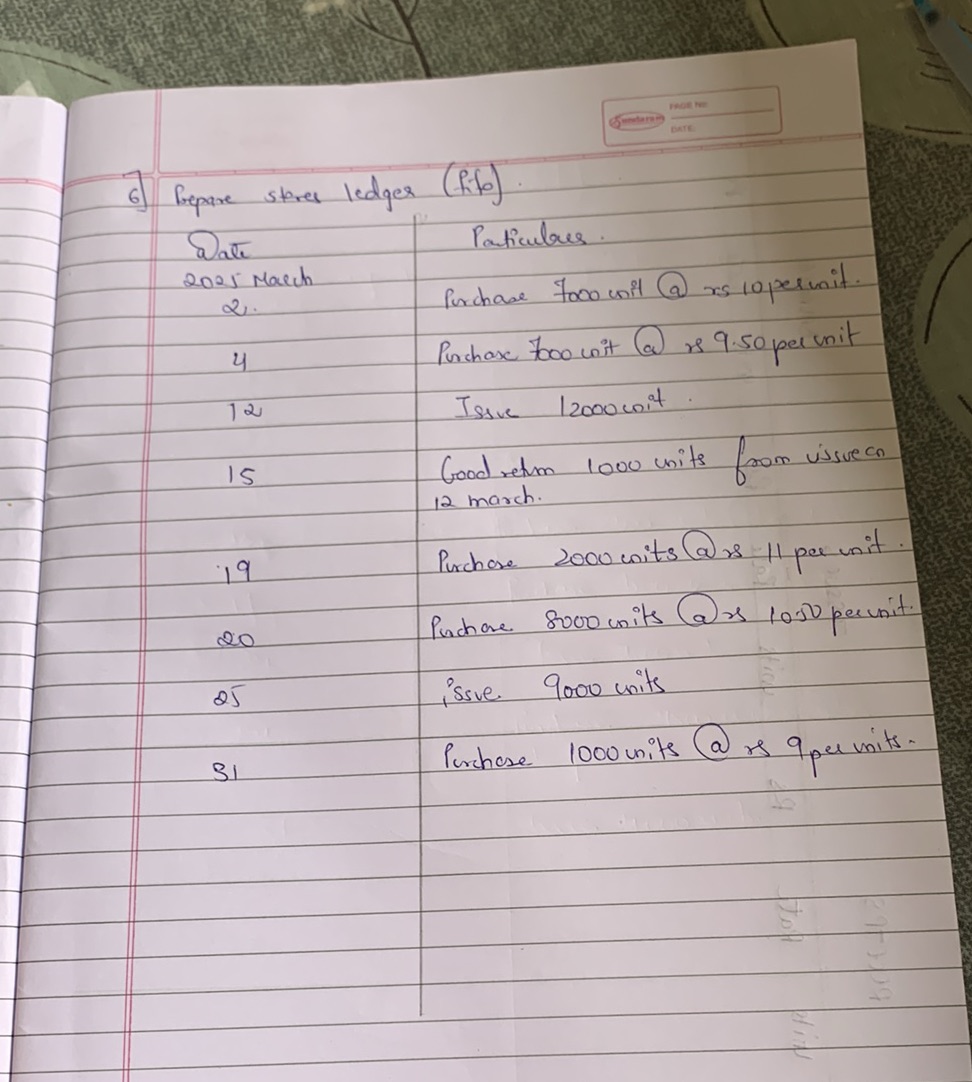 Sundaram
PAGE No:
DATE:
6] Prepare stores ledger (fifo).
Date Paticulars.
2025 March
2. Purchase 7000 unit @ rs 10 per unit.
4 Purchase 7000 unit @ rs 9.50 per unit
12 Issue 12000 unit.
15 Good return 1000 units from issue on
12 march.
19 Purchase 2000 units @ rs 11 per unit.
20 Purchase 8000 units @ rs 1050 per unit.
25 issue 9000 units
31 Purchase 1000 units @ rs 9 per units.